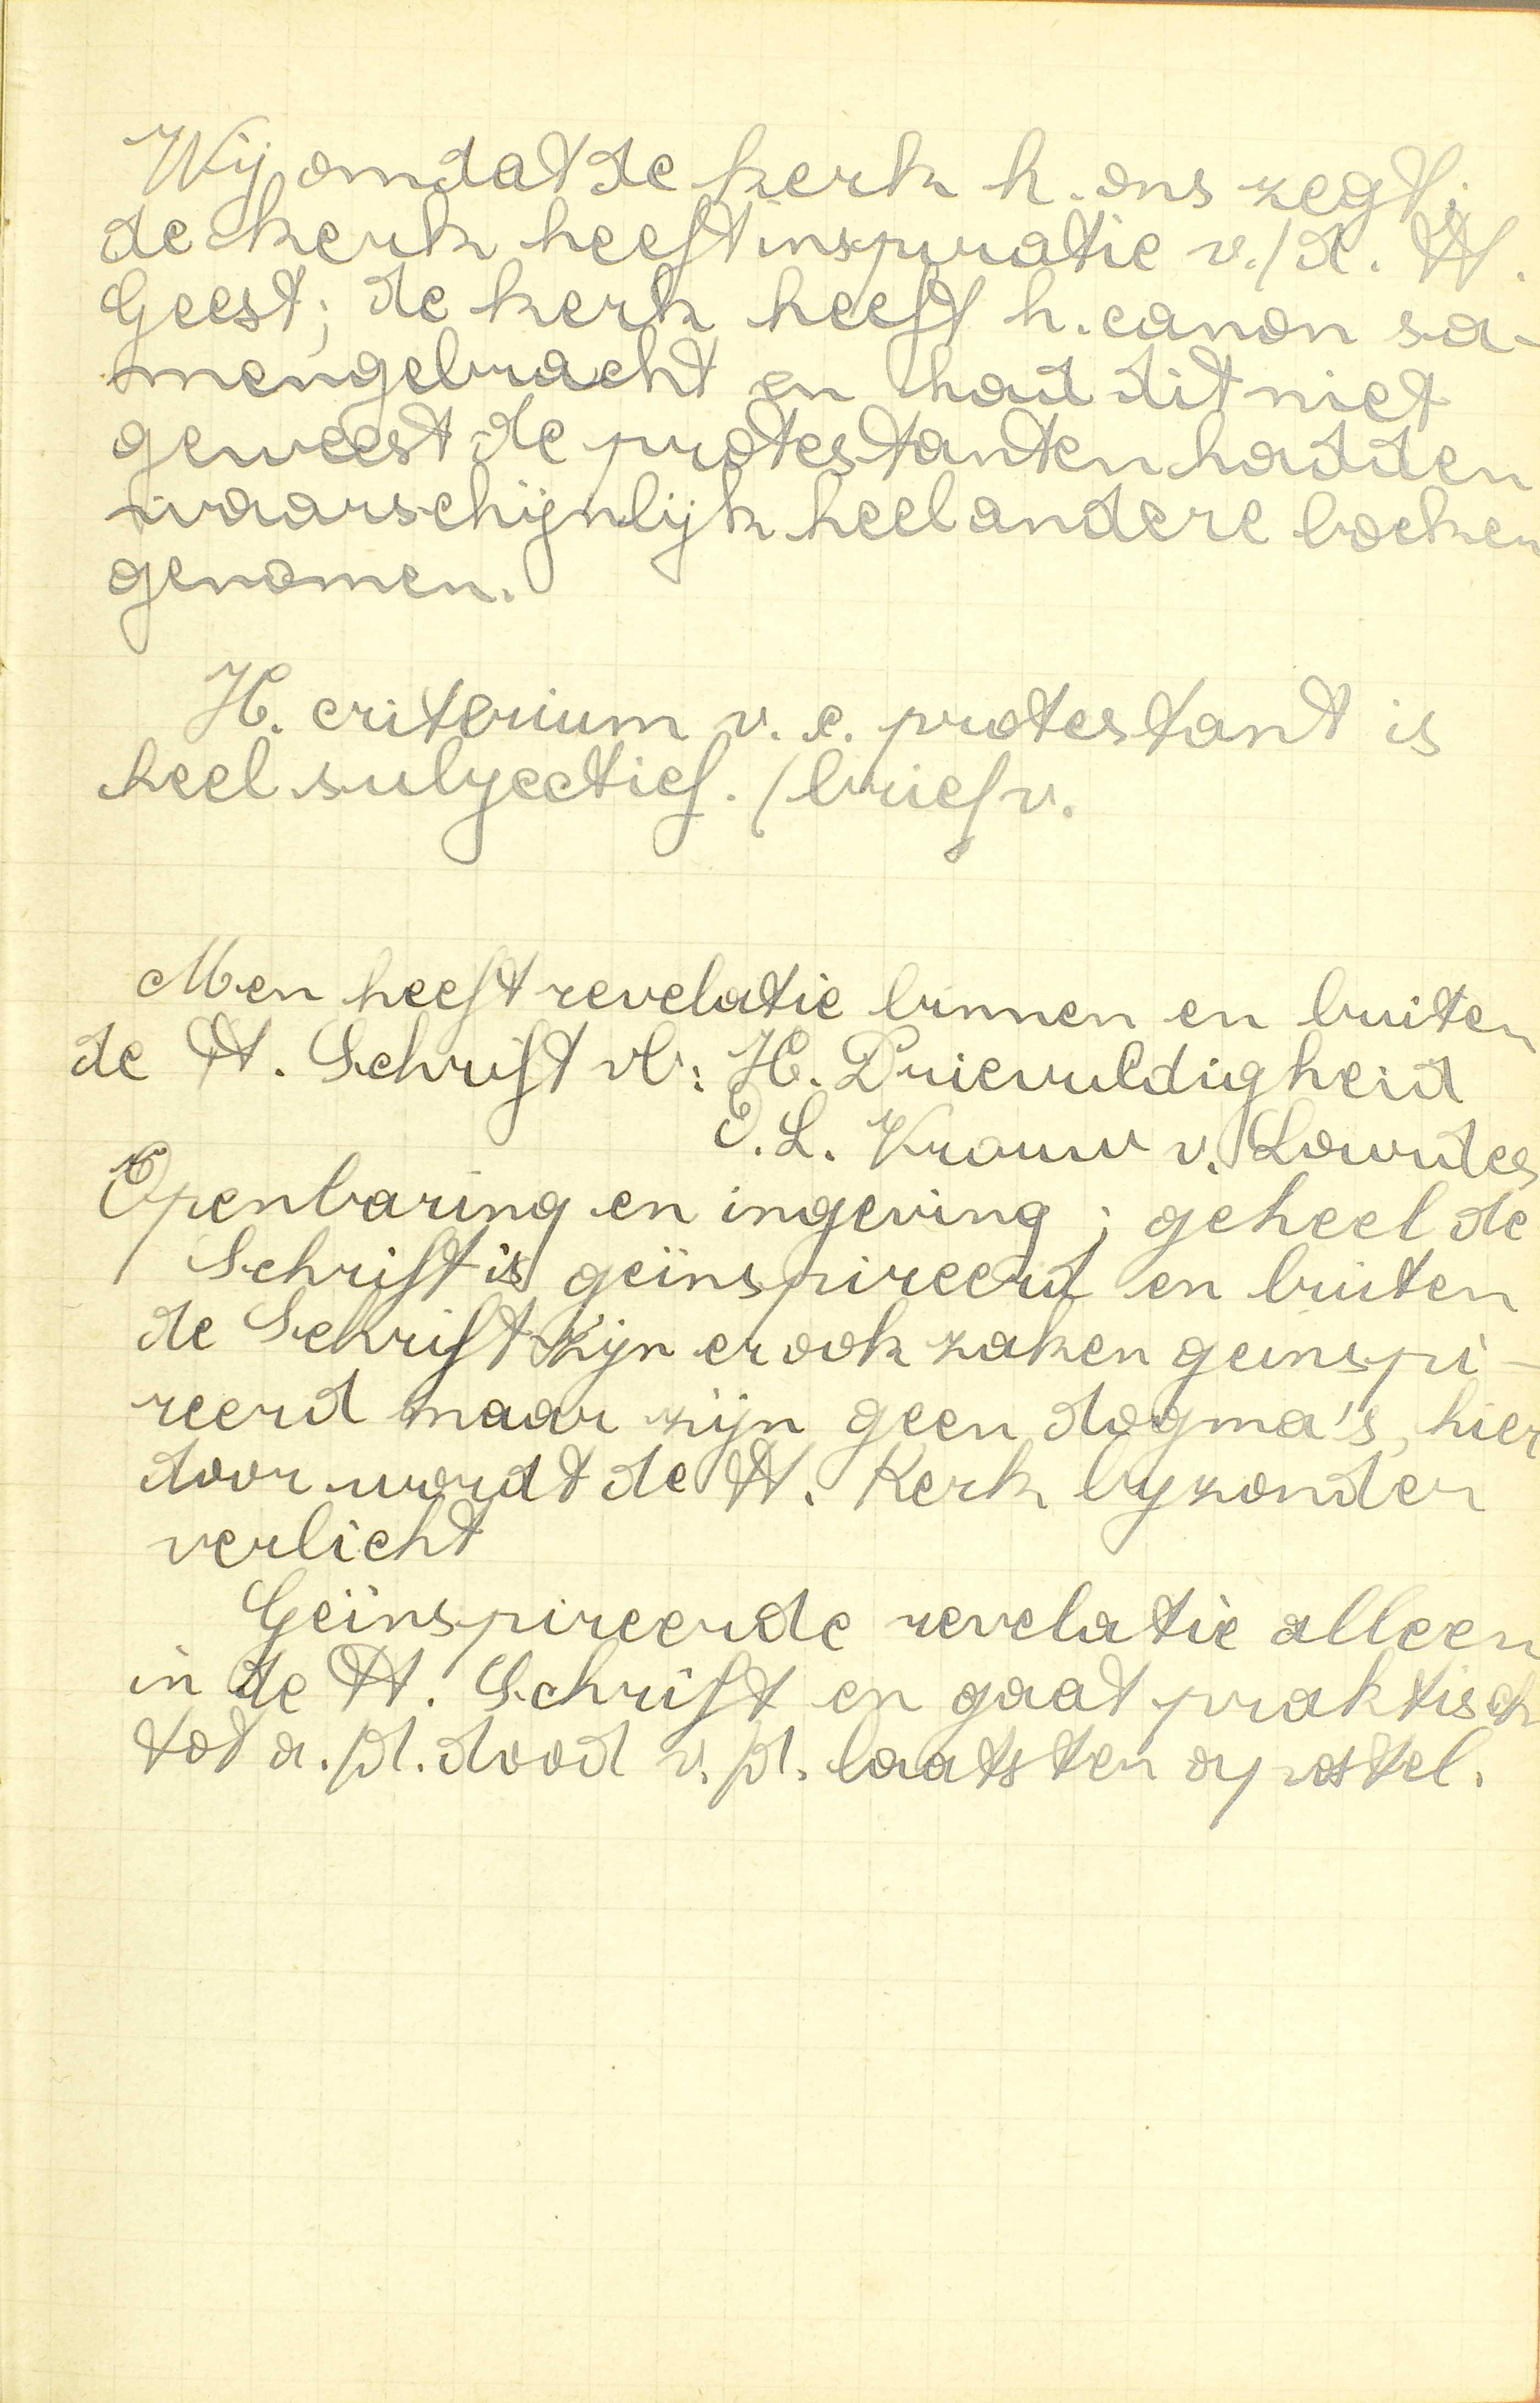 Wij omdat de kerk h. ons zegt;
de kerk heeft inspiratie v./d. H.
Geest; de kerk heeft h. canon sa-
mengebracht en had dit niet
geweest de protestanten hadden
waarschijnlijk heel andere boeken
genomen.
H. criterium v. e. protestant is
heel subjectief. / brief v.
Men heeft revelatie binnen en buiten
de H. Schrift vb: H. Drievuldigheid
O. L. Vrouw v. Lourdes
Openbaring en ingeving; geheel de
Schrift is geïnspireerd en buiten
de Schrift zijn er ook zaken geinspi-
reerd maar zijn geen dogma's, hier
door wordt de H. Kerk byzonder
verlicht
Geïnspireerde revelatie alleen
in de H. Schrift en gaat praktisch
tot a./d. dood v./d. laatsten apostel.